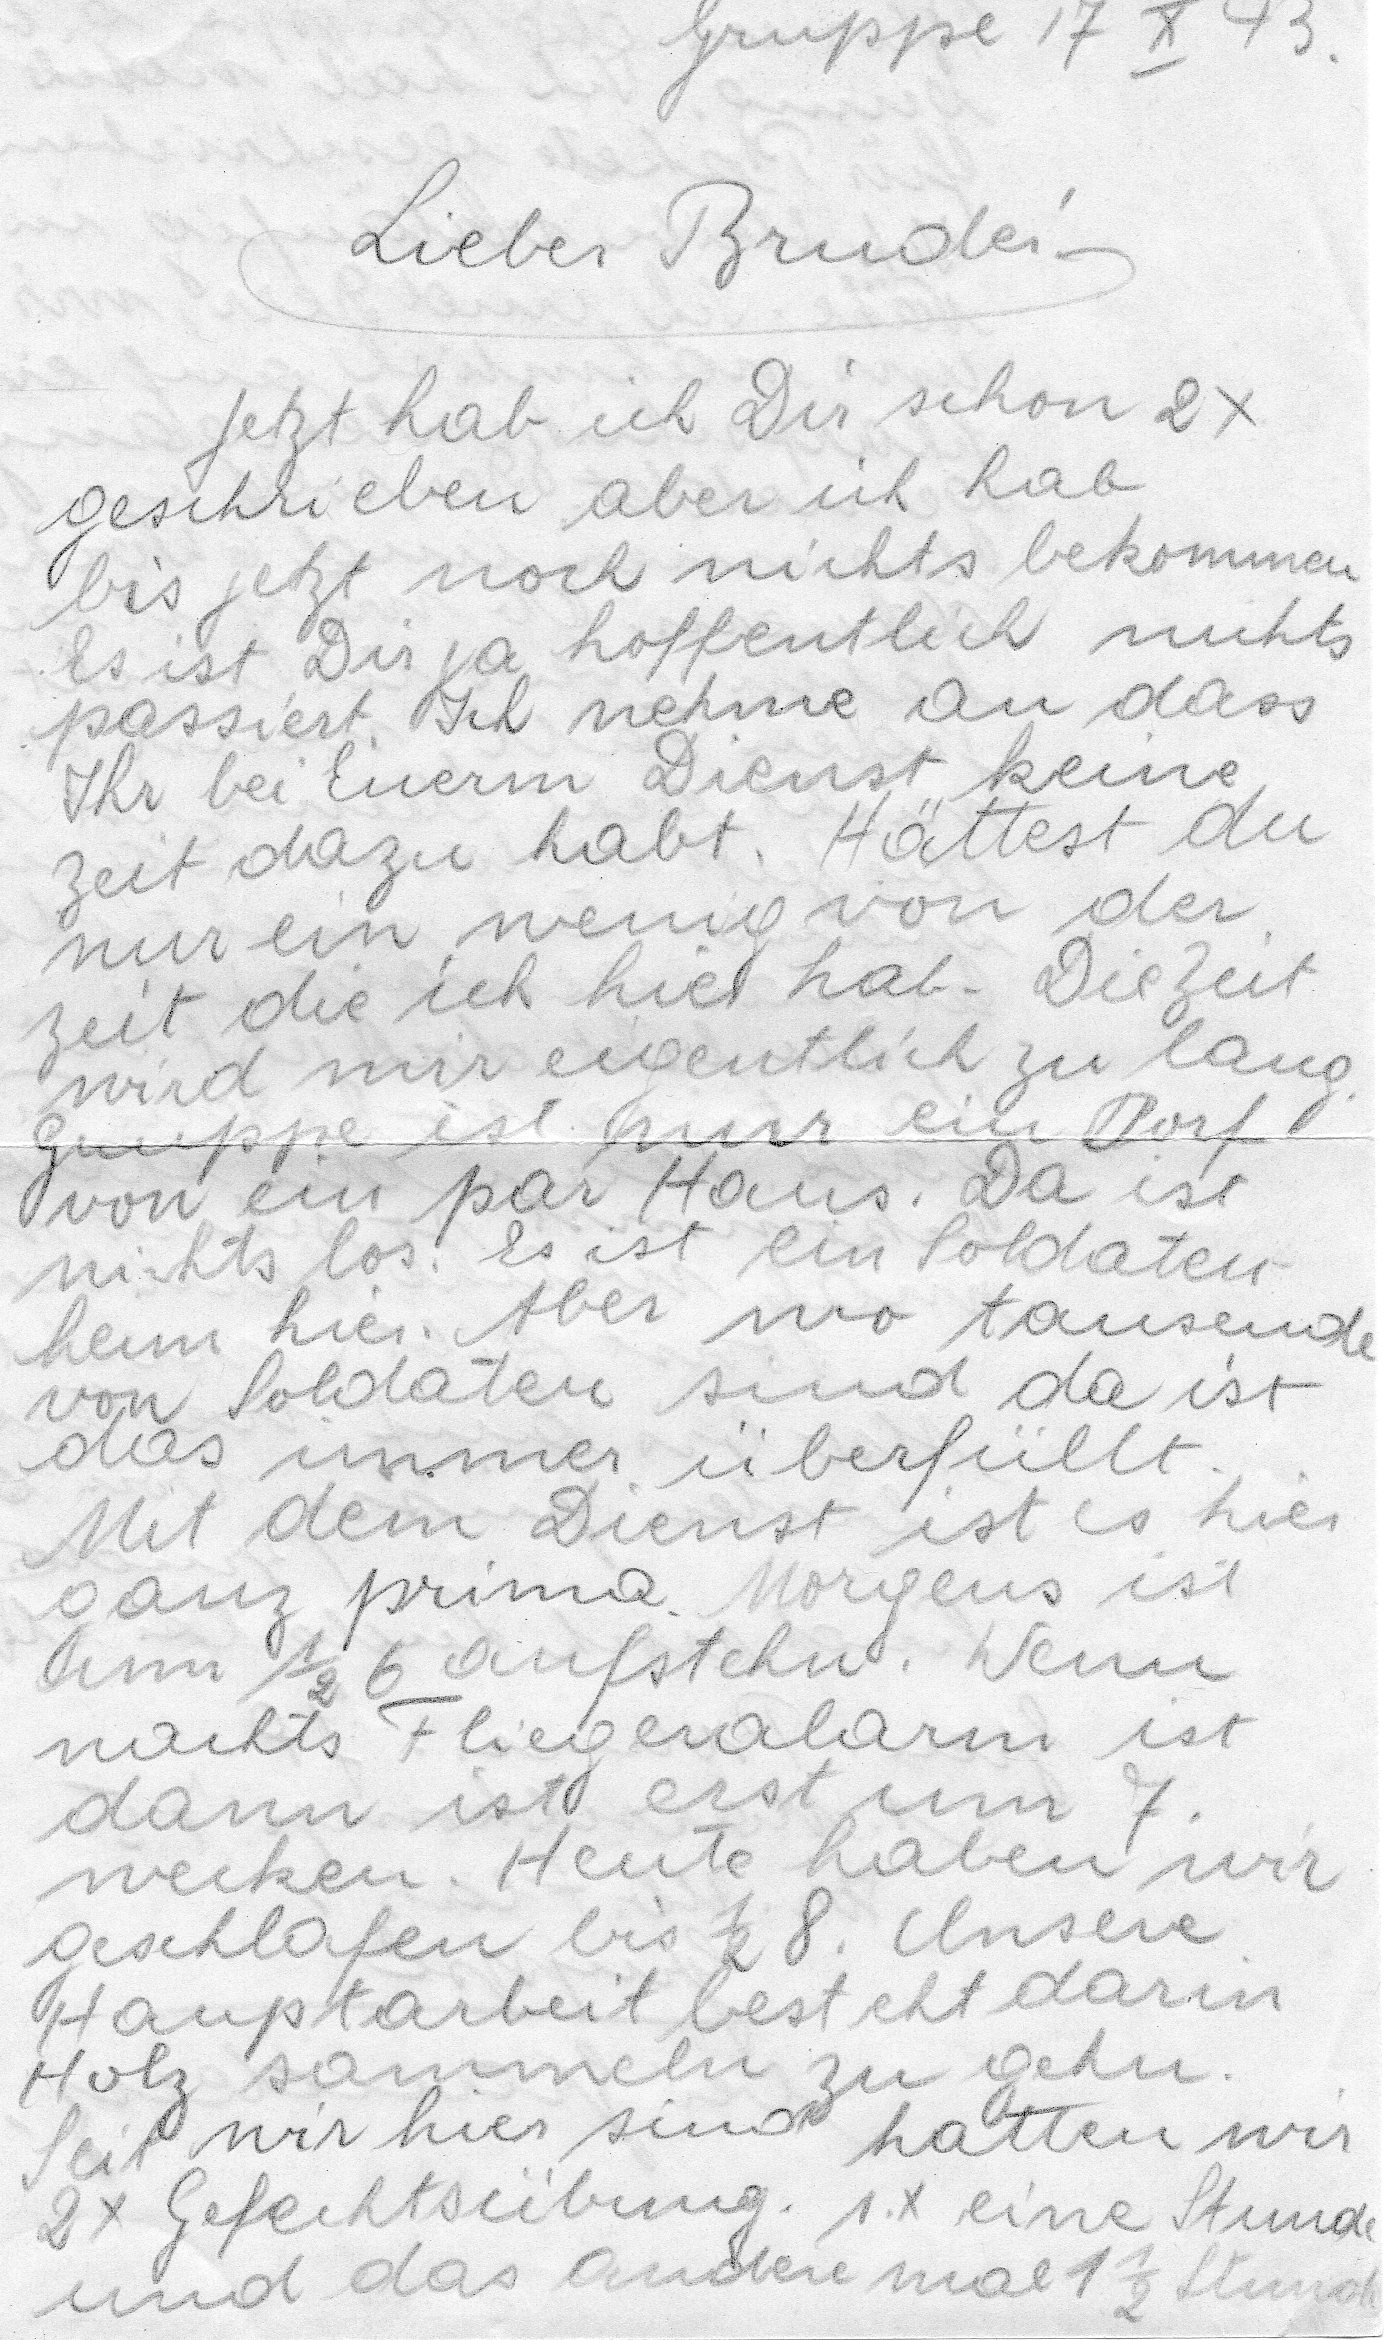 Gruppe 17 X 43.
Lieber Bruder
Jetzt hab ich Dir schon 2x
geschrieben aber ich hab
bis jetzt noch nichts bekommen
Es ist Dir ja hoffentlich nichts
passiert. Ich nehme an dass
Ihr bei Euerm Dienst keine
zeit dazu habt. Hättest du
nur ein wenig von der
zeit die ich hier hab. Die Zeit
wird mir eigentlich zu lang.
Gruppe ist nur ein Dorf
von ein par Haus. Da ist
nichts los. Es ist ein Soldaten-
heim hier. Aber wo tausende
von Soldaten sind da ist
das immer überfüllt.
Mit dem Dienst ist es hier
ganz prima. Morgens ist
um ½ 6 aufstehn. Wenn
nachts Fliegeralarm ist
dann ist erst um 7.
wecken. Heute haben wir
geschlafen bis ½ 8. Unsere
Hauptarbeit besteht darin
Holz sammeln zu gehn.
Seit wir hier sind hatten wir
2x Gefechtsübung. 1.x eine Stunde
und das andere mal 1 ½ Stunde